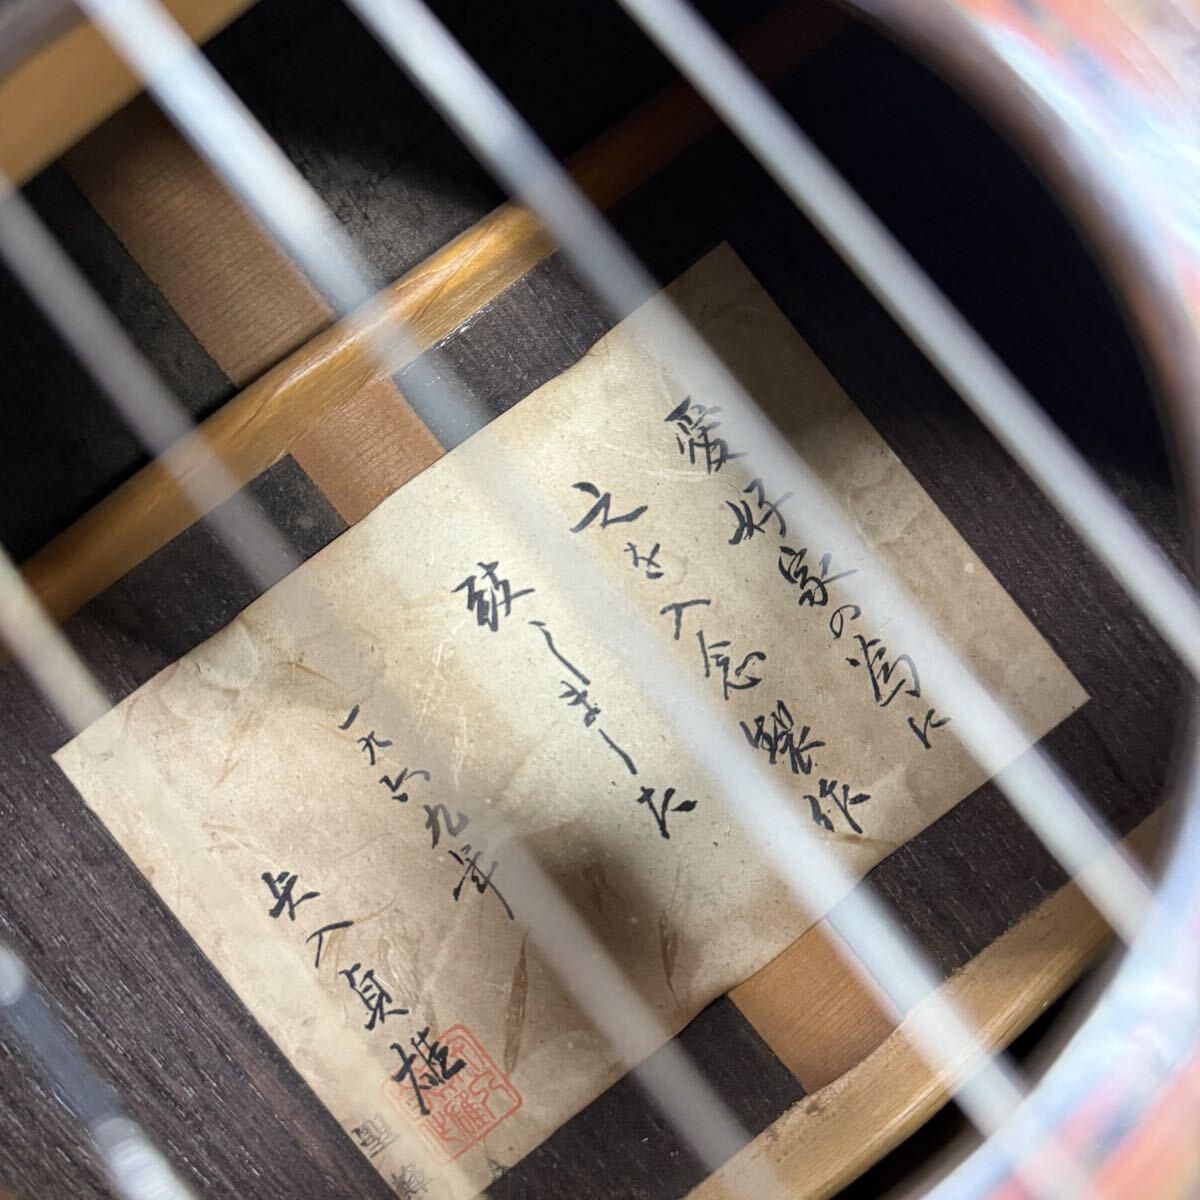 愛好家の為に
之を入念製作
致しました
一九六九年
矢入貞雄